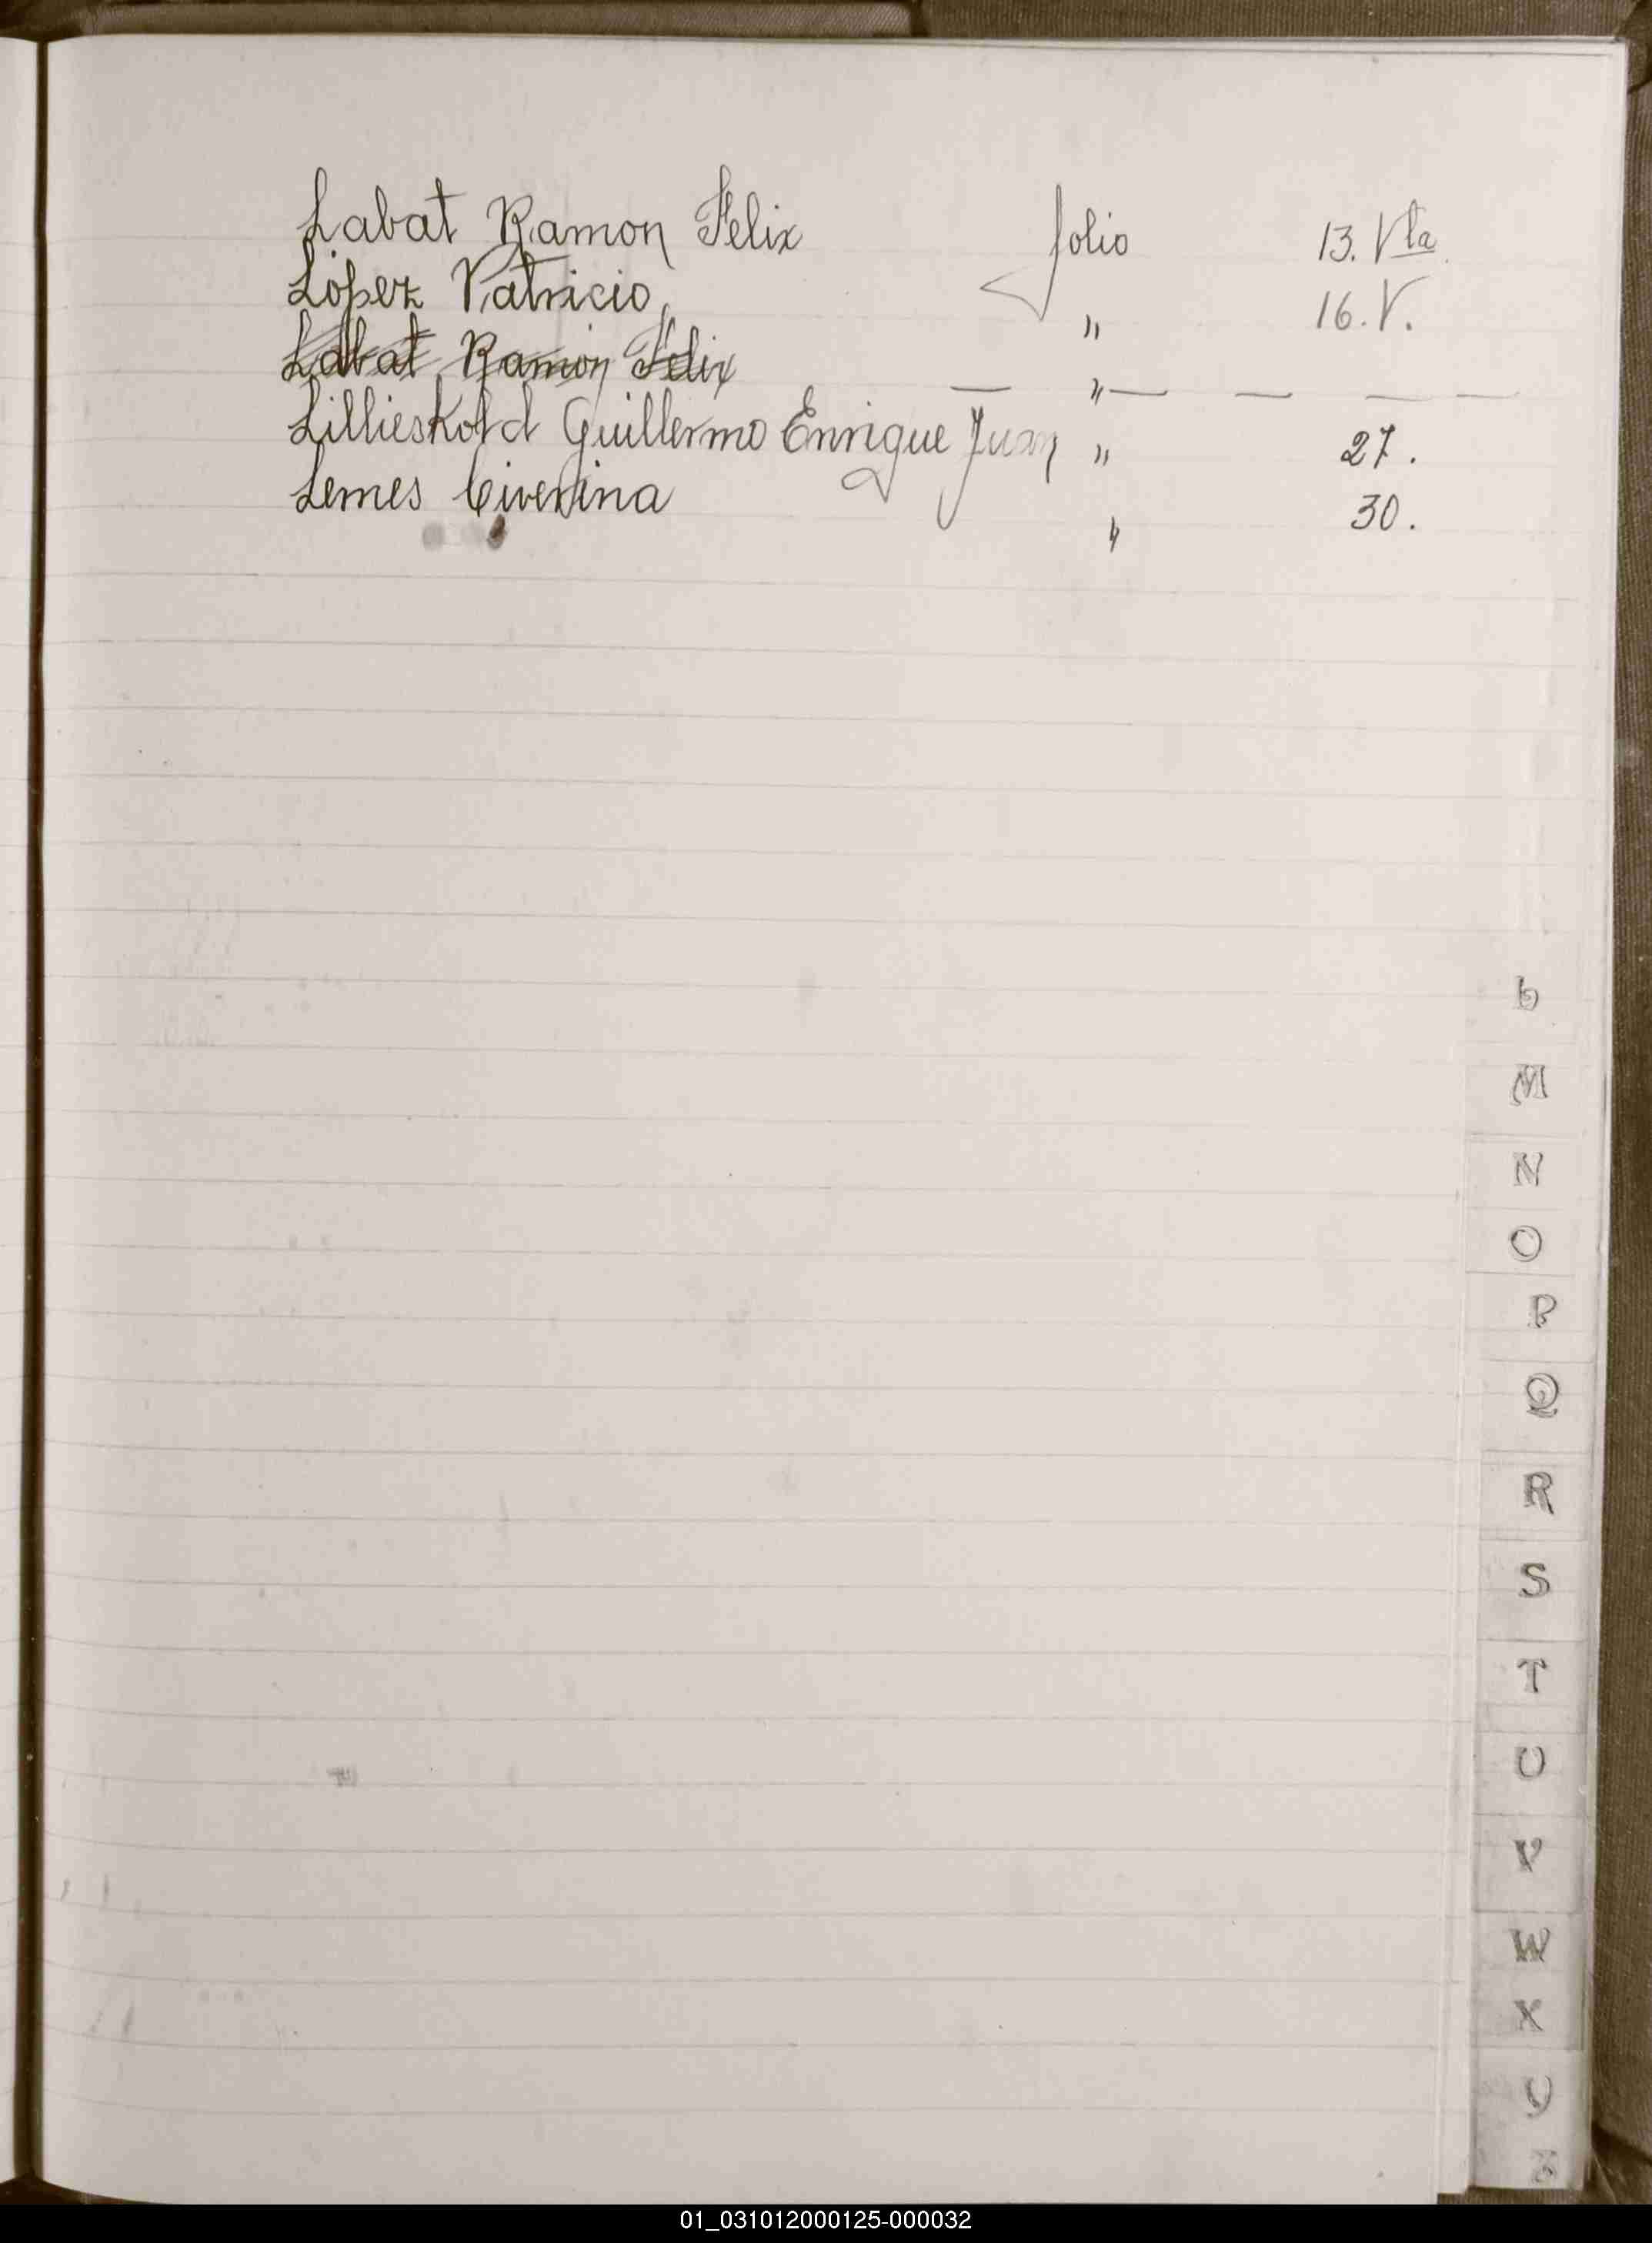 Labat Ramon Felix folio 13. Vta.
López Patricio, " 16. V.
Labat Ramon Felix — " — — — —
Lillieskold Guillermo Enrique Juan " 27.
Lemes Civerina " 30.
L
M
N
O
P
Q
R
S
T
U
V
W
X
Y
Z
01_031012000125-000032